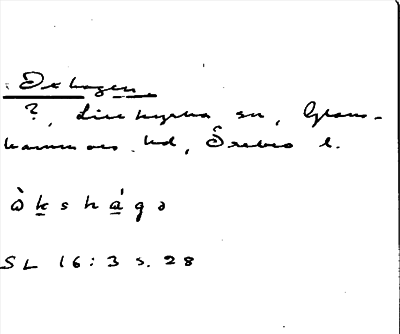 Oxhagen
?, Lillkyrka sn, Glans-
hammars hd, Örebro l.
ò̀kshágə
SL 16:3 s. 28